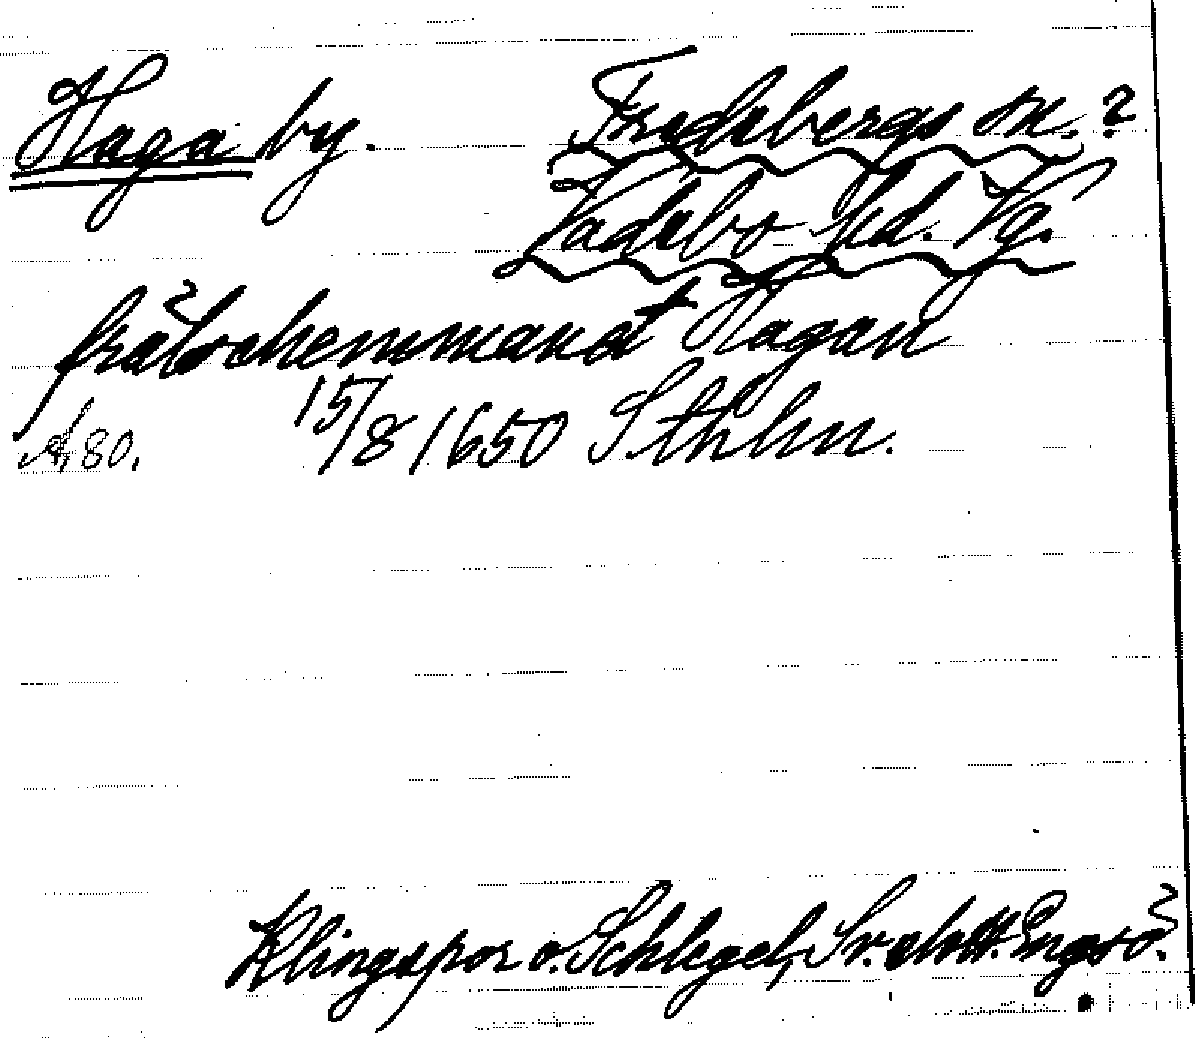 Haga by. Fredsbergs sn.?
Vadsbo hd. Vg.
frälsehemmanet Hagan
A, 80. 15/8 1650 Sthlm.
Klingspor o. Schlegel, Sv. slott. Engsö.